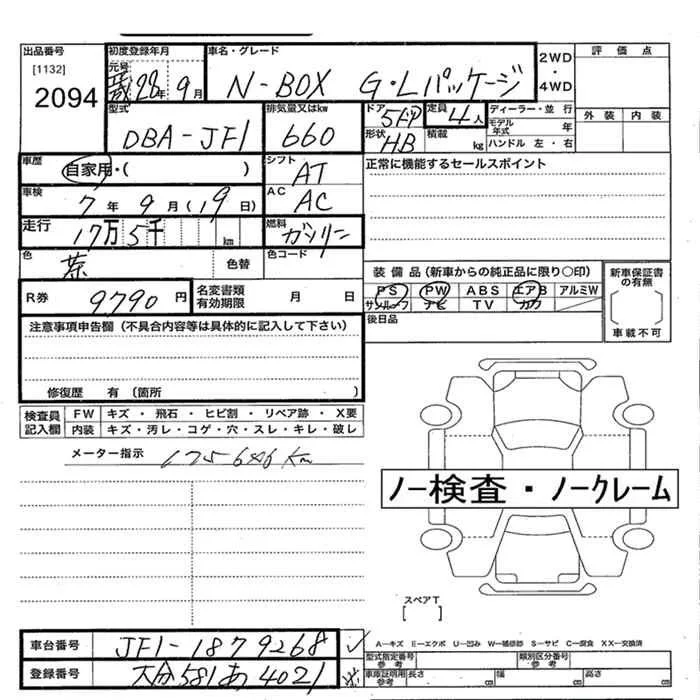 出品番号 初度登録年月 車名・グレード 2WD・4WD 評価点
[1132]
2094
元号 28年 9月 N-BOX G・Lパッケージ
外装 内装
型式 DBA-JF1
排気量又はkw 660
ドア 5ドア 形状 HB
定員 4人 積載 kg
ディーラー・並行
モデル年式 年
ハンドル 左・右
車歴 自家用・( )
シフト AT
正常に機能するセールスポイント
車検 7年 9月 (19日)
AC AC
走行 17万 5千 km
燃料 ガソリン
色 茶 色替
色コード
装備品(新車からの純正品に限り○印)
PS PW ABS エアB アルミW
サンルーフ ナビ TV カワ
新車保証書の有無
車載不可
R券 9790円
名変書類有効期限 月 日
後日品
注意事項申告欄(不具合内容等は具体的に記入して下さい)
修復歴 有 (箇所
検査員記入欄
FW キズ・飛石・ヒビ割・リペア跡・X要
内装 キズ・汚レ・コゲ・穴・スレ・キレ・破レ
メーター指示 175686 Km
ノー検査・ノークレーム
スペアT
[ ]
A―キズ E―エクボ U―凹み W―補修跡 S―サビ C―腐食 XX―交換済
車台番号 JF1-1879268
登録番号 大分581あ4021
型式指定番号 参考 類別区分番号 参考
車庫証明用 参考 長さ cm 幅 cm 高さ cm